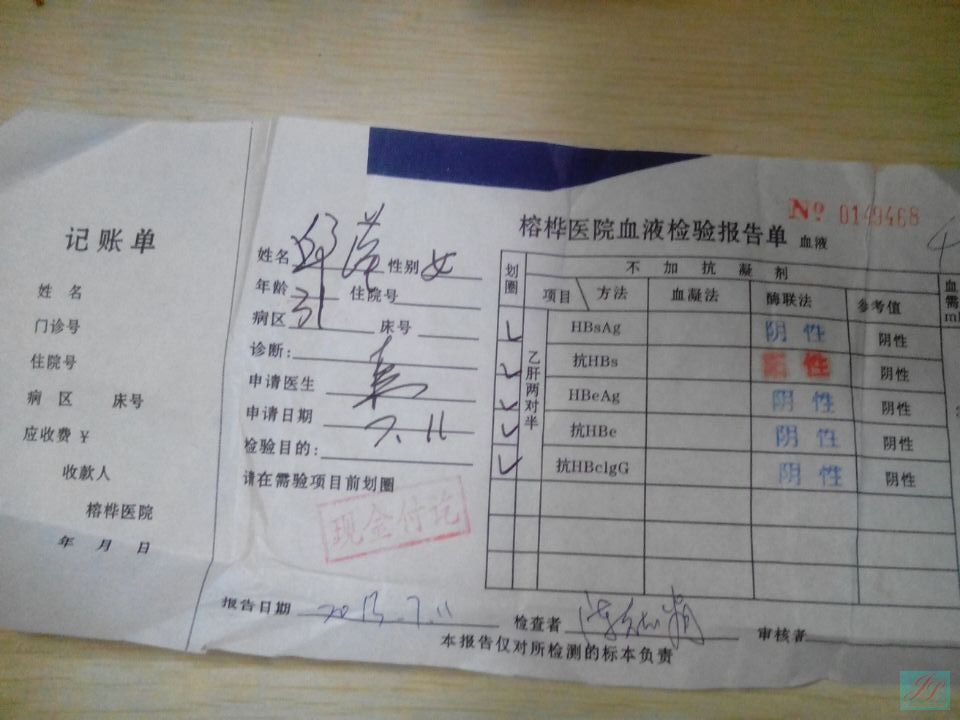 记账单
姓 名
门诊号
住院号
病 区 床号
应收费 ¥
收款人
榕桦医院
年 月 日
No 0149468
榕桦医院血液检验报告单 血液
姓名 性别 女
年龄 31 住院号
病区 床号
诊断:
申请医生
申请日期 7.11
检验目的:
请在需验项目前划圈
现金付讫
划圈 不加抗凝剂 血
项目 方法 血凝法 酶联法 参考值 需 ml
乙肝两对半
HBsAg 阴性 阴性
抗HBs 阳性 阴性
HBeAg 阴性 阴性
抗HBe 阴性 阴性
抗HBcIgG 阴性 阴性
报告日期 2013.7.11 检查者 审核者
本报告仅对所检测的标本负责